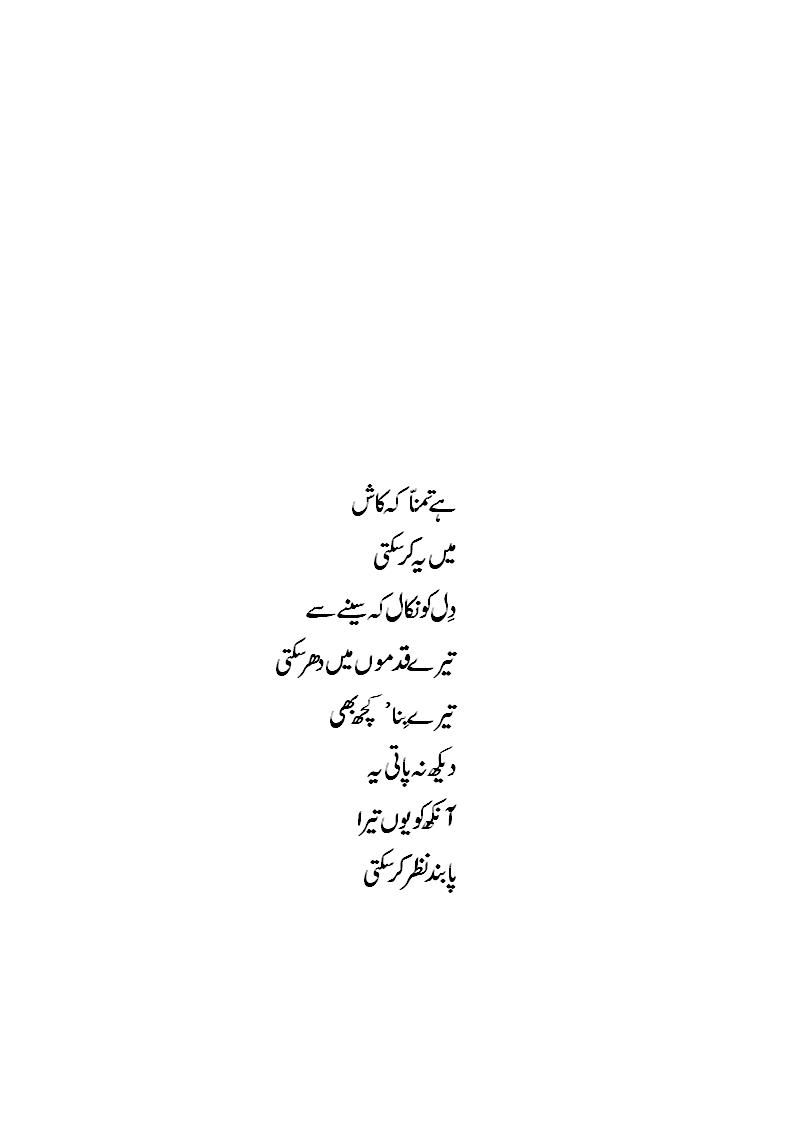 ہے تمنّا کہ کاش
میں یہ کر سکتی
دِل کو نکال کہ سینے سے
تیرے قدموں میں دھر سکتی
تیرے بِنا ُ کچھ بھی
دیکھ نہ پاتی یہ
آنکھ کو یوں تیرا
پابند نظر کر سکتی